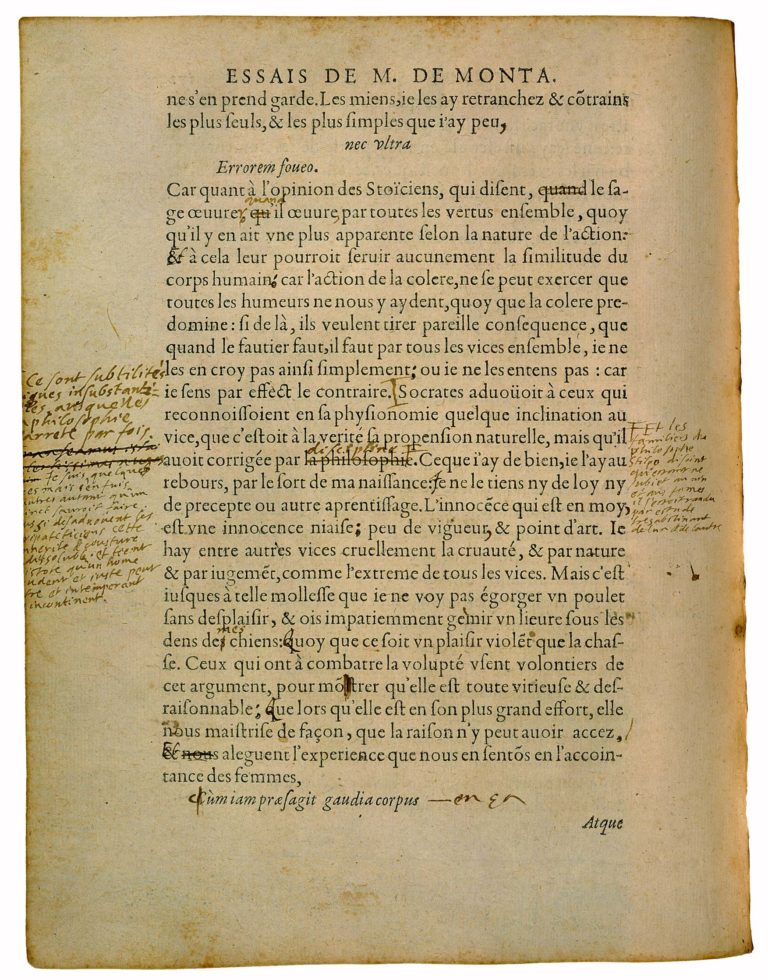 ESSAIS DE M. DE MONTA.
ne s'en prend garde. Les miens, ie les ay retranchez & cõtrains
les plus seuls, & les plus simples que i'ay peu,
nec vltra
Errorem foueo.
Car quant à l'opinion des Stoïciens, qui disent, quand le sa-
quand
ge œuure, qu'il œuure par toutes les vertus ensemble, quoy
qu'il y en ait vne plus apparente selon la nature de l'action:
& à cela leur pourroit seruir aucunement la similitude du
corps humain; car l'action de la colere, ne se peut exercer que
toutes les humeurs ne nous y aydent, quoy que la colere pre-
domine: si de là, ils veulent tirer pareille consequence, que
quand le fautier faut, il faut par tous les vices ensemble, ie ne
les en croy pas ainsi simplement; ou ie ne les entens pas: car
ie sens par effect le contraire. Socrates aduoüoit à ceux qui
reconnoissoient en sa physionomie quelque inclination au
vice, que c'estoit à la verité sa propension naturelle, mais qu'il
discipline
auoit corrigée par la philosophie. Ce que i'ay de bien, ie l'ay au
rebours, par le sort de ma naissance: Je ne le tiens ny de loy ny
de precepte ou autre aprentissage. L'innocẽce qui est en moy,
est vne innocence niaise; peu de vigueur, & point d'art. Ie
hay entre autres vices cruellement la cruauté, & par nature
& par iugemẽt, comme l'extreme de tous les vices. Mais c'est
iusques à telle mollesse que ie ne voy pas égorger vn poulet
sans desplaisir, & ois impatiemment gemir vn lieure sous les
mes
dens de chiens: Quoy que ce soit vn plaisir violẽt que la chas-
se. Ceux qui ont à combatre la volupté vsent volontiers de
cet argument, pour mõstrer qu'elle est toute vitieuse & des-
raisonnable; Que lors qu'elle est en son plus grand effort, elle
nous maistrise de façon, que la raison n'y peut auoir accez,
& nous aleguent l'experience que nous en sentõs en l'accoin-
tance des femmes,
Cùm iam præsagit gaudia corpus
Atque
Ce sont subtilités
insubstantie
philosophie
arrete par fois.
Je suis quelques
incontinent.
Et les
familiers du
philosophe